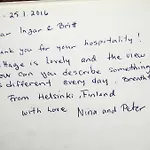 - 25.1.2016
Ingar & Britt
ank you for your hospitality!
ttage is lovely and the view
ow can you describe something
s different every day. Breath
From Helsinki, Finland
with love Nina and Peter